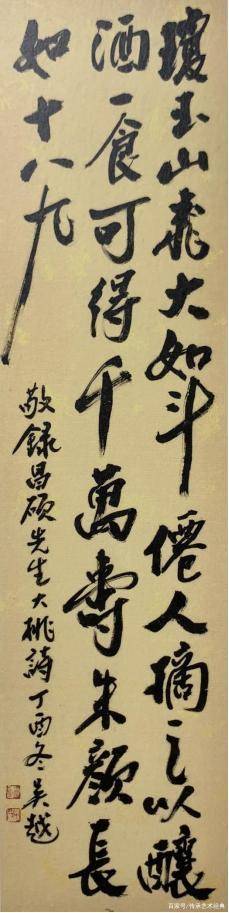 瓊玉山桃大如斗僊人摘之以釀
酒一食可得千萬壽朱顏長
如十八九
敬錄昌碩先生大桃詩丁酉冬吴越
百家号/传承艺术经典